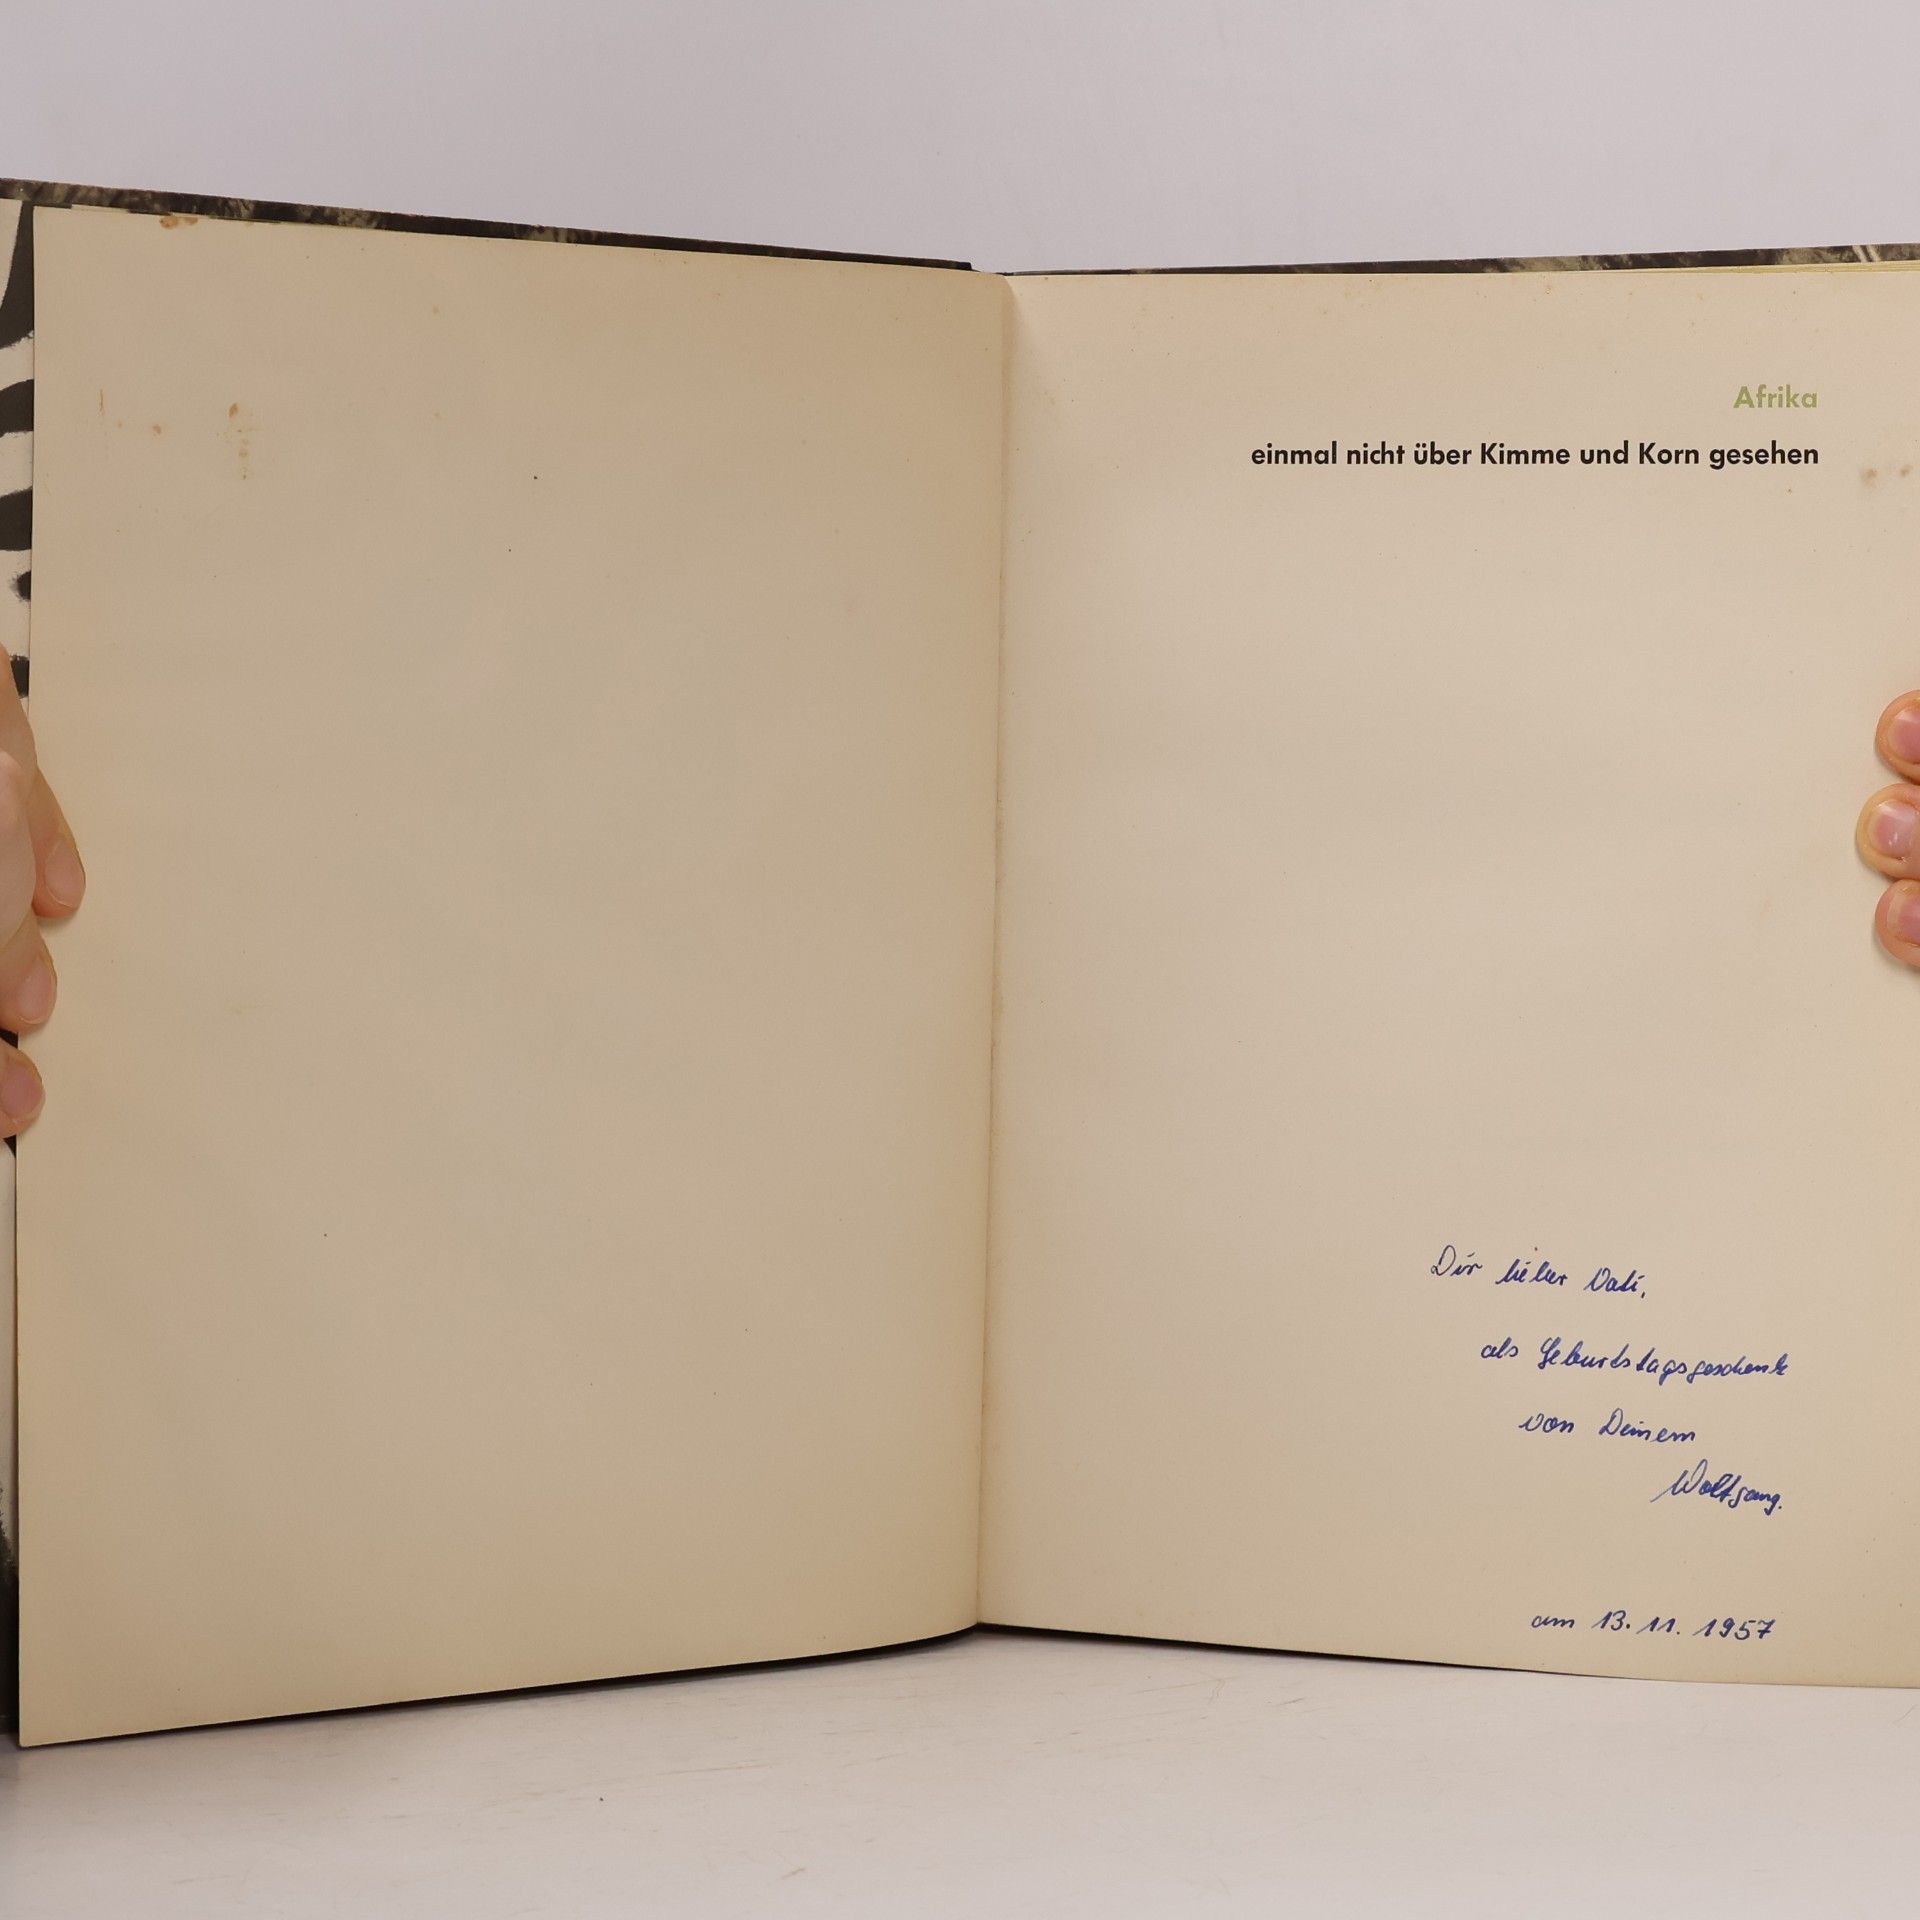 Afrika
einmal nicht über Kimme und Korn gesehen
Dir lieber Vati,
als Geburtstagsgeschenk
von Deinem
Wolfgang.
am 13. 11. 1957